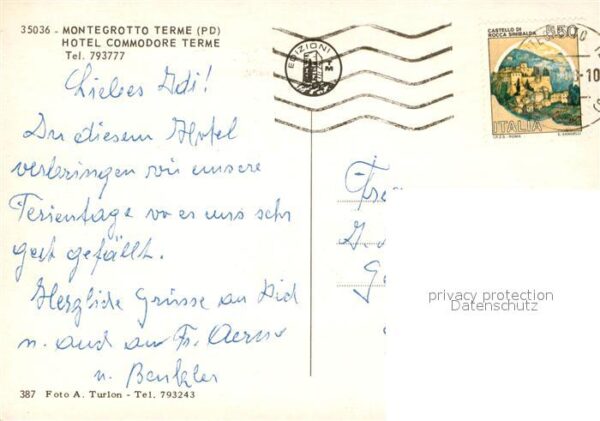 35036 - MONTEGROTTO TERME (PD)
HOTEL COMMODORE TERME
Tel. 793777
Liebes Idi!
In diesem Hotel
verbringen wir unsere
Ferientage wo es uns sehr
gut gefällt.
Herzliche Grüsse an Dich
u. auch an Fr.
u.
387 Foto A. Turlon - Tel. 793243
EDIZIONI
CASTELLO DI
ROCCA SINIBALDA
550
ITALIA
I.P.Z.S. - ROMA
privacy protection
Datenschutz